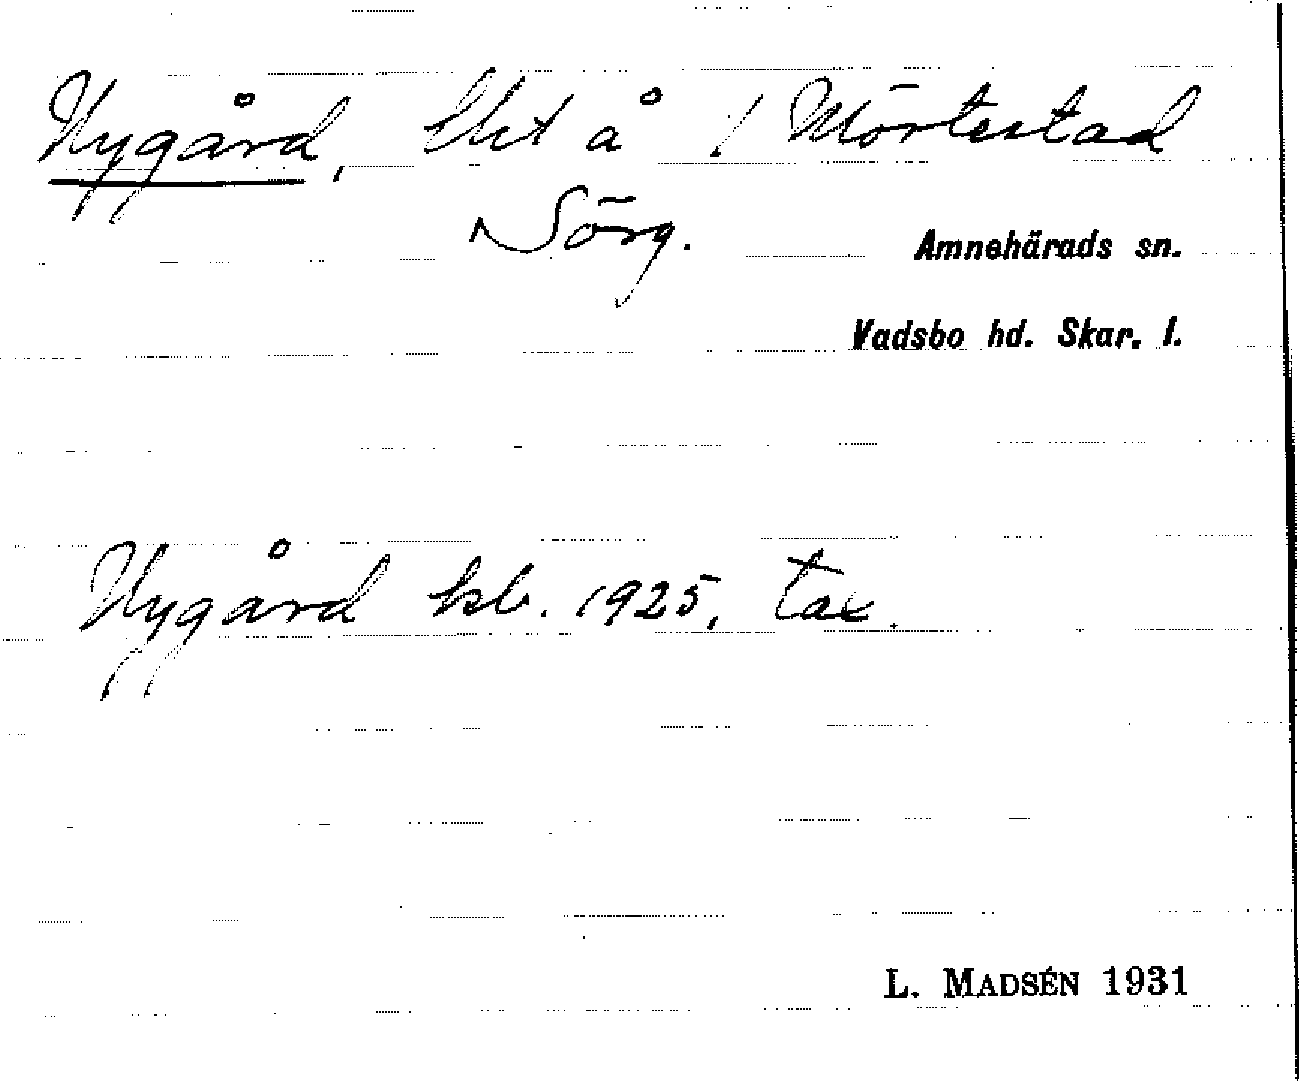 Nygård, lht å 1 Mörtestad
Sörg.
Amnehärads sn.
Vadsbo hd. Skar. l.
Nygård kb. 1925, tax.
L. MADSÉN 1931